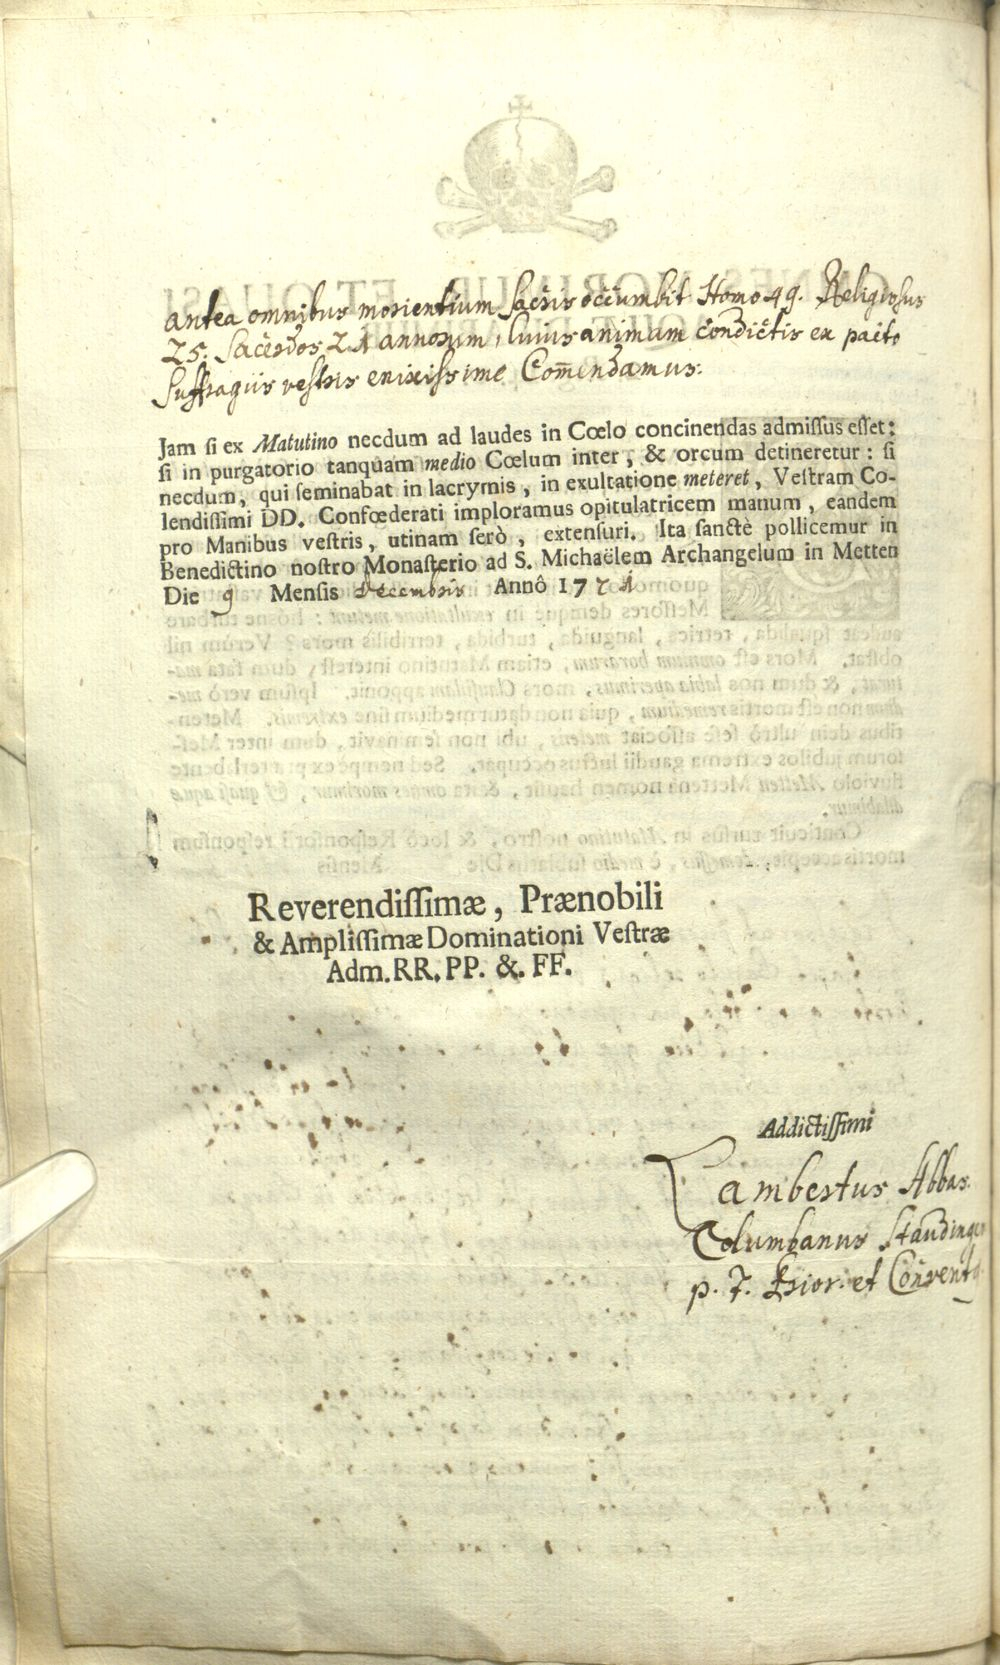 antea omnibus morientium sacris occumbit Homo 49. Religiosus
25. Sacerdos 21 annorum, cuius animam condictis ex pacto
suffragiis vestris enixissime Com̄endamus.
Jam ſi ex Matutino necdum ad laudes in Cœlo concinendas admiſſus eſſet:
ſi in purgatorio tanquam medio Cœlum inter, & orcum detineretur: ſi
necdum, qui ſeminabat in lacrymis, in exultatione meteret, Veſtram Co-
lendiſſimi DD. Confœderati imploramus opitulatricem manum, eandem
pro Manibus veſtris, utinam ſerò, extenſuri. Ita ſanctè pollicemur in
Benedictino noſtro Monaſterio ad S. Michaëlem Archangelum in Metten
Die 9 Menſis decembris Annô 1721
Reverendiſſimæ, Prænobili
& Ampliſſimæ Dominationi Veſtræ
Adm. RR. PP. &. FF.
Addictiſſimi
Lambertus Abbas.
Columbanus Standinger
p. T. Prior. et Convent9